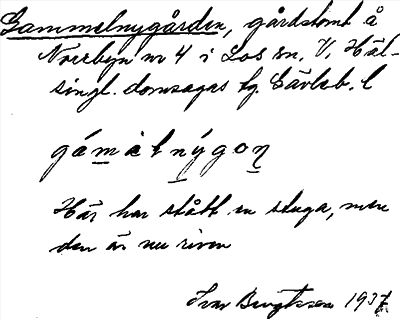 Gammelnygården, gårdstomt å
Norrbyn nr 4 i Los sn. V. Häl-
singl. domsagas tg. Gävleb. l
gámàlnýgon
Här har stått en stuga, men
den är nu riven
Ivar Bengtsson 1937.